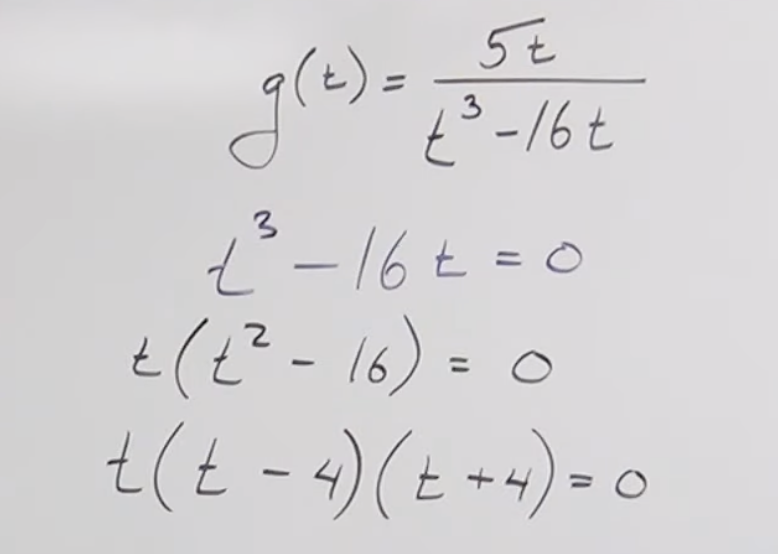 g(t) = 5t / t³ - 16t
t³ - 16t = 0
t(t² - 16) = 0
t(t - 4)(t + 4) = 0